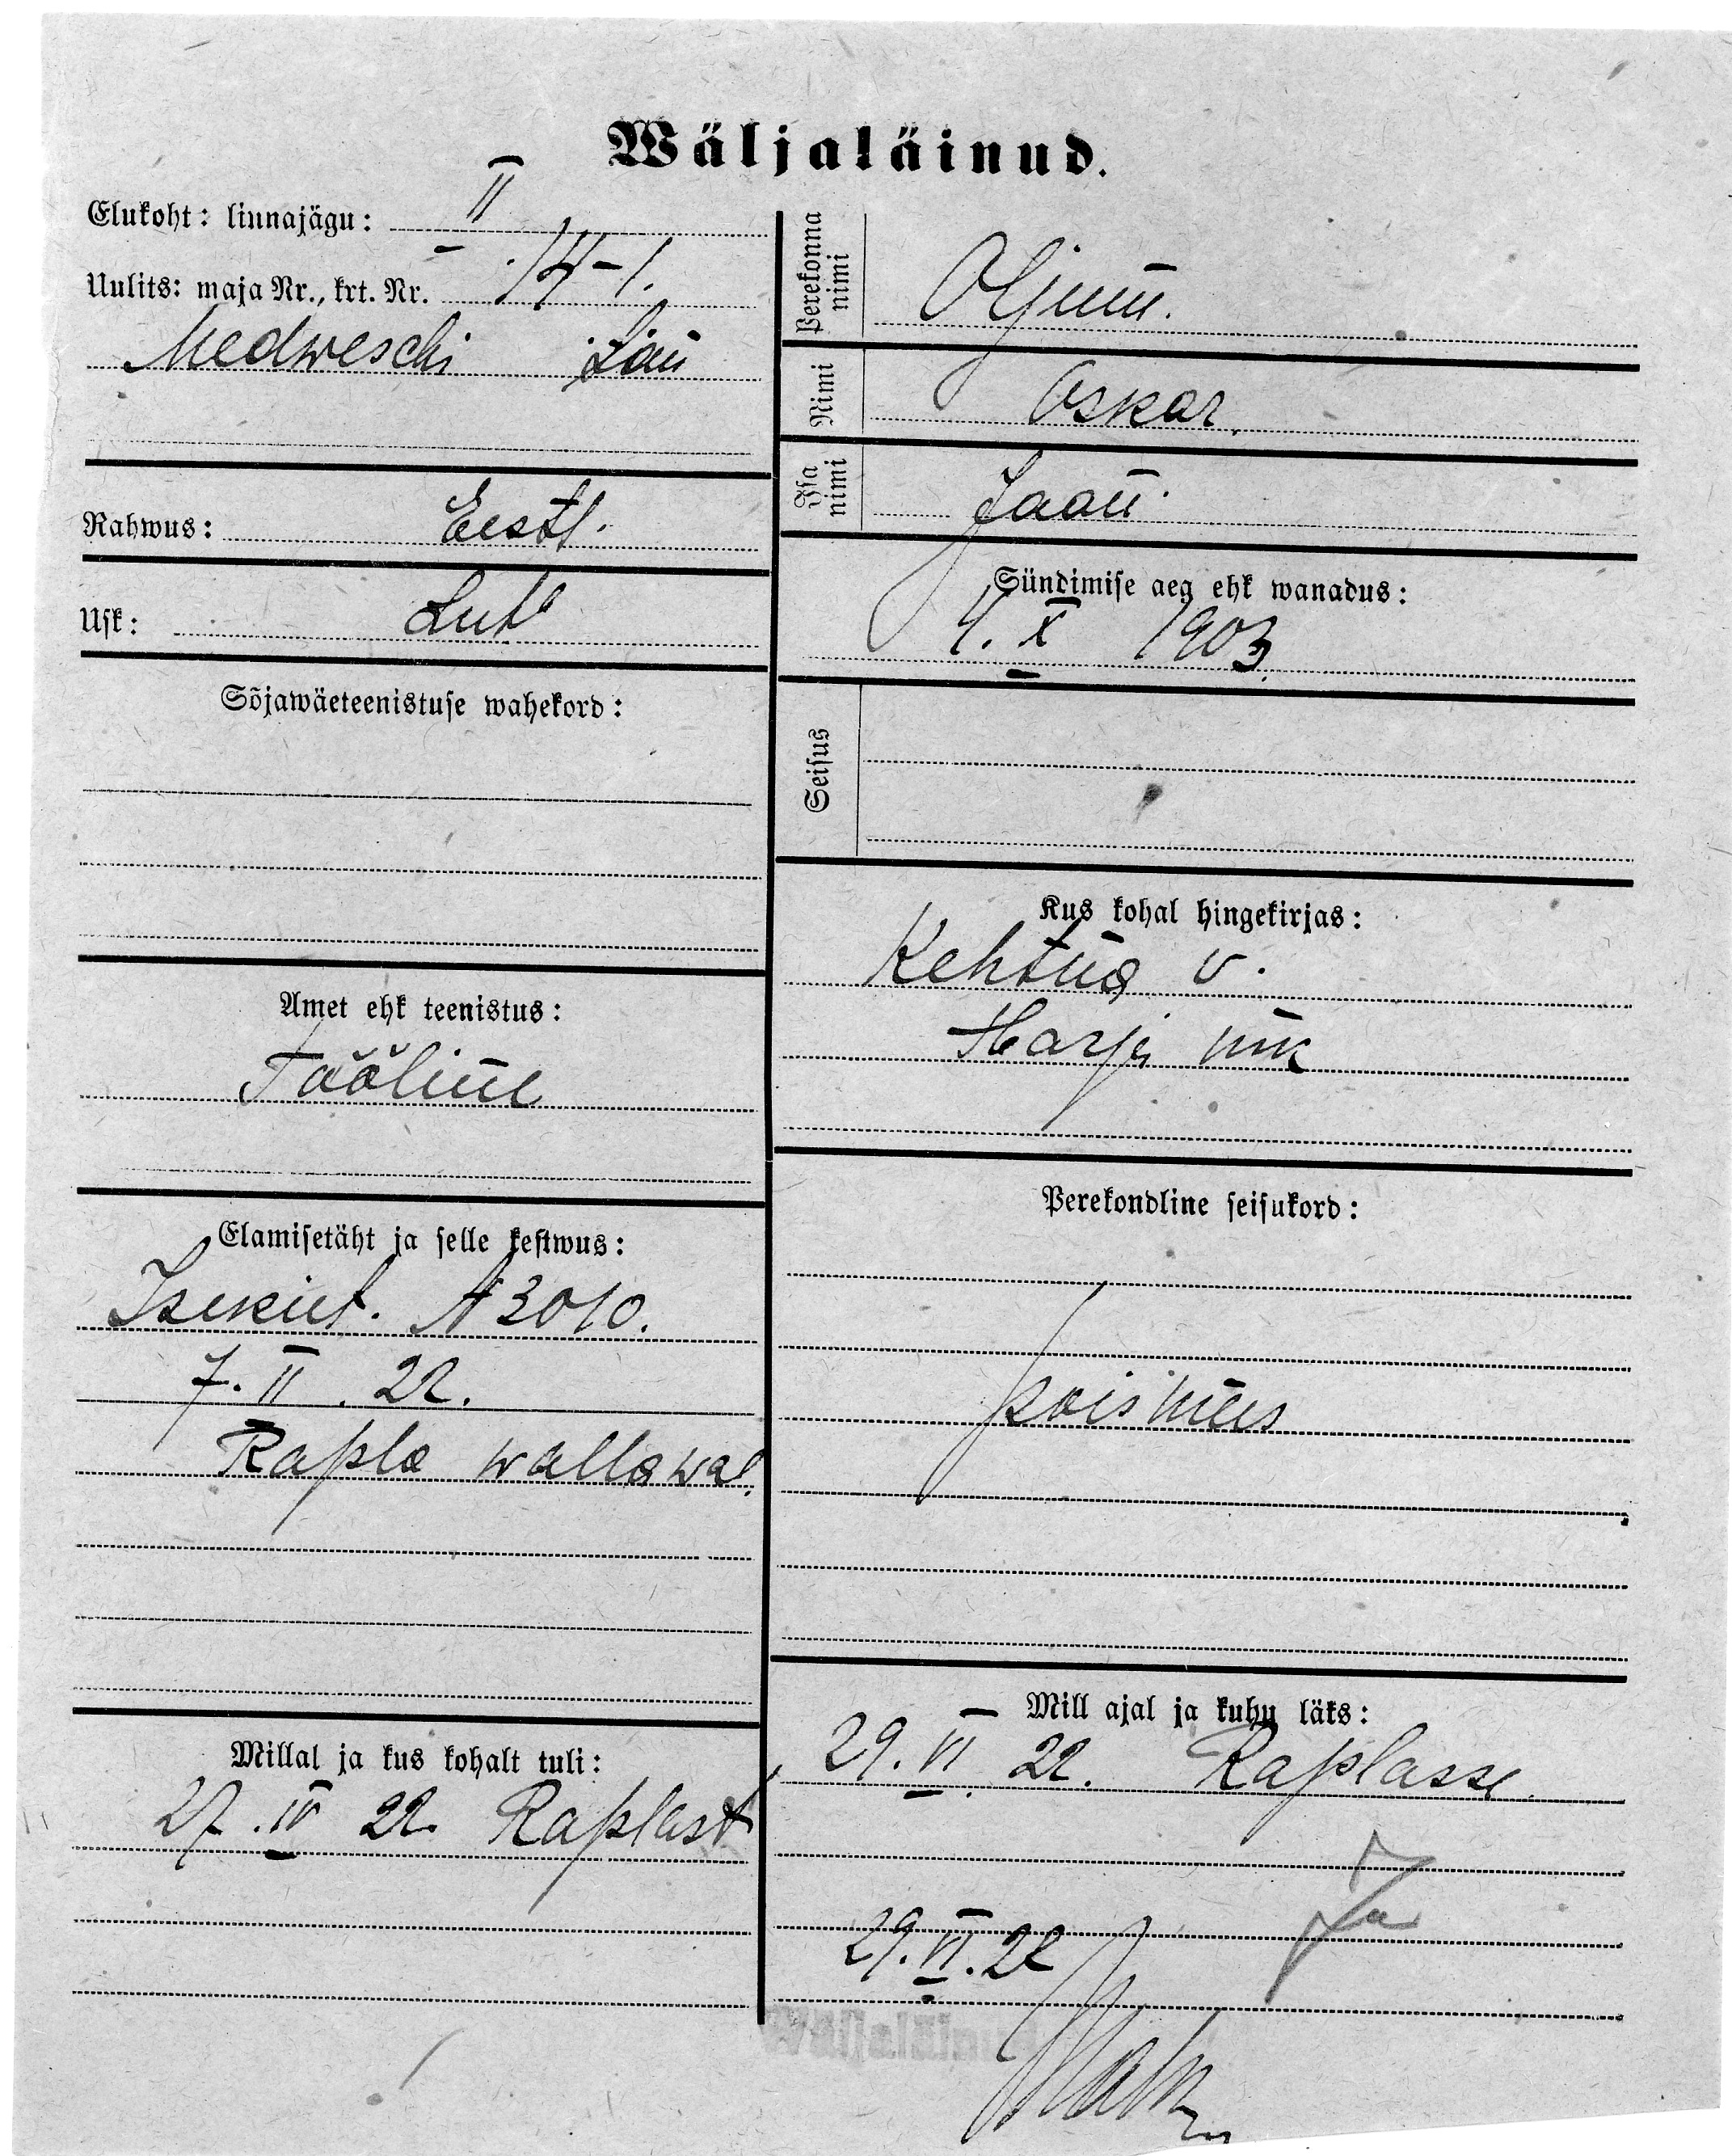 Wäljaläinud.
Elukoht: linnajägu: II
Uulits: maja Nr., krt. Nr. 14-1.
Medweschi
Rahwus: Eestl.
Usk: Lut
Sõjawäeteenistuse wahekord:
Amet ehk teenistus:
Tööline
Elamisetäht ja selle kestwus:
Isikut. N 3010.
7. II. 22.
Rapla wallawal.
Millal ja kus kohalt tuli:
27. IV 22. Raplast
Perekonna nimi
Nimi Oskar.
Isa nimi Jaan.
Sündimise aeg ehk wanadus:
4. X 1903.
Seisus
Kus kohal hingekirjas:
Kehtna v.
Harju mk
Perekondline seisukord:
poismees
Mill ajal ja kuhu läks:
29. VI 22. Raplasse.
29. VI. 22
Wäljaläinud